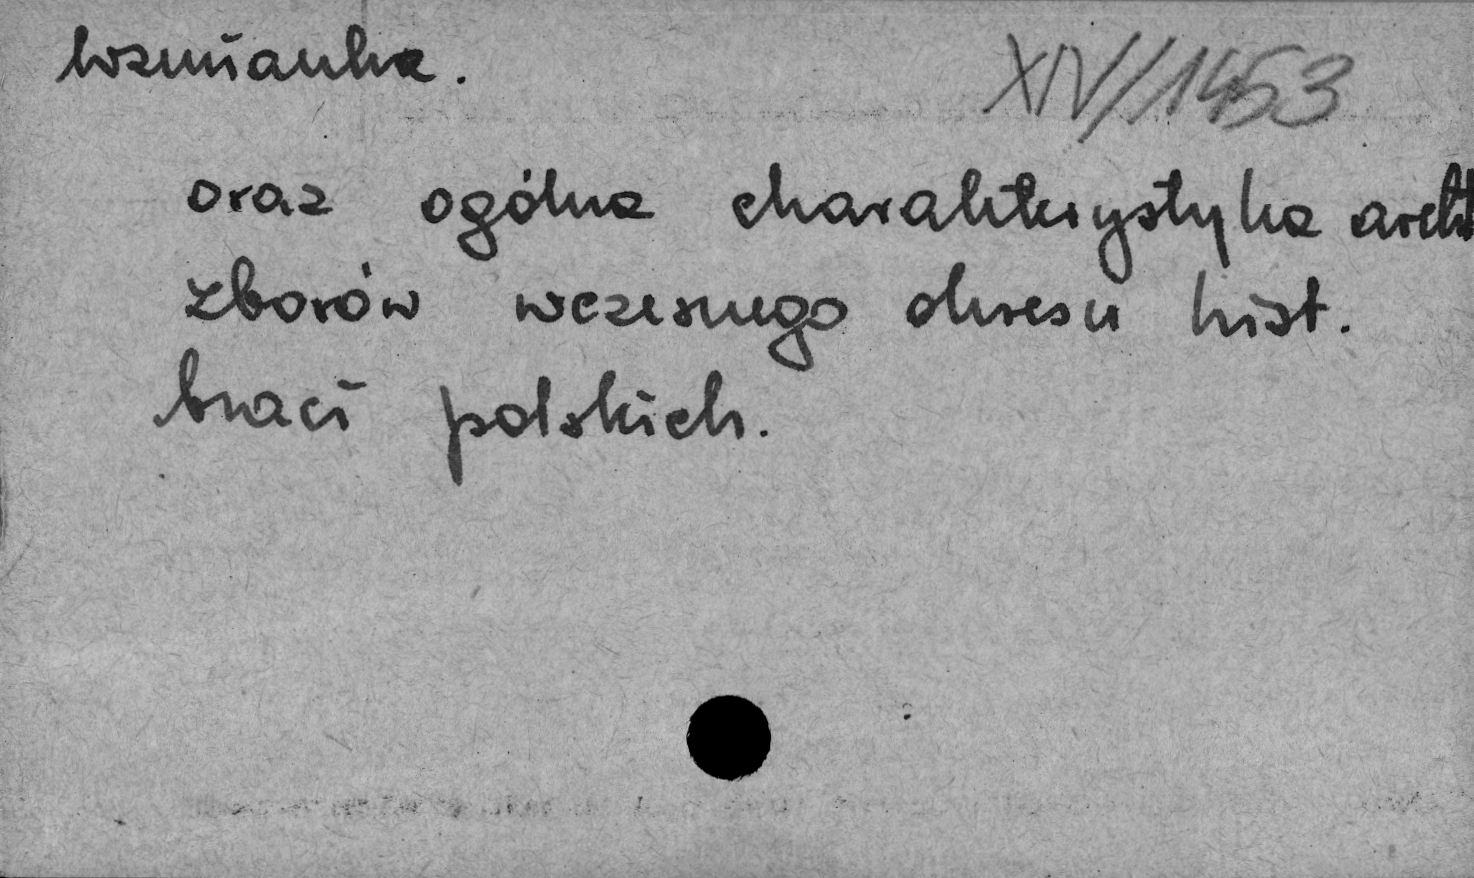 wzmianka.
XIV//1453
oraz ogólna charakterystyka
zborów wczesnego okresu hist.
braci polskich.